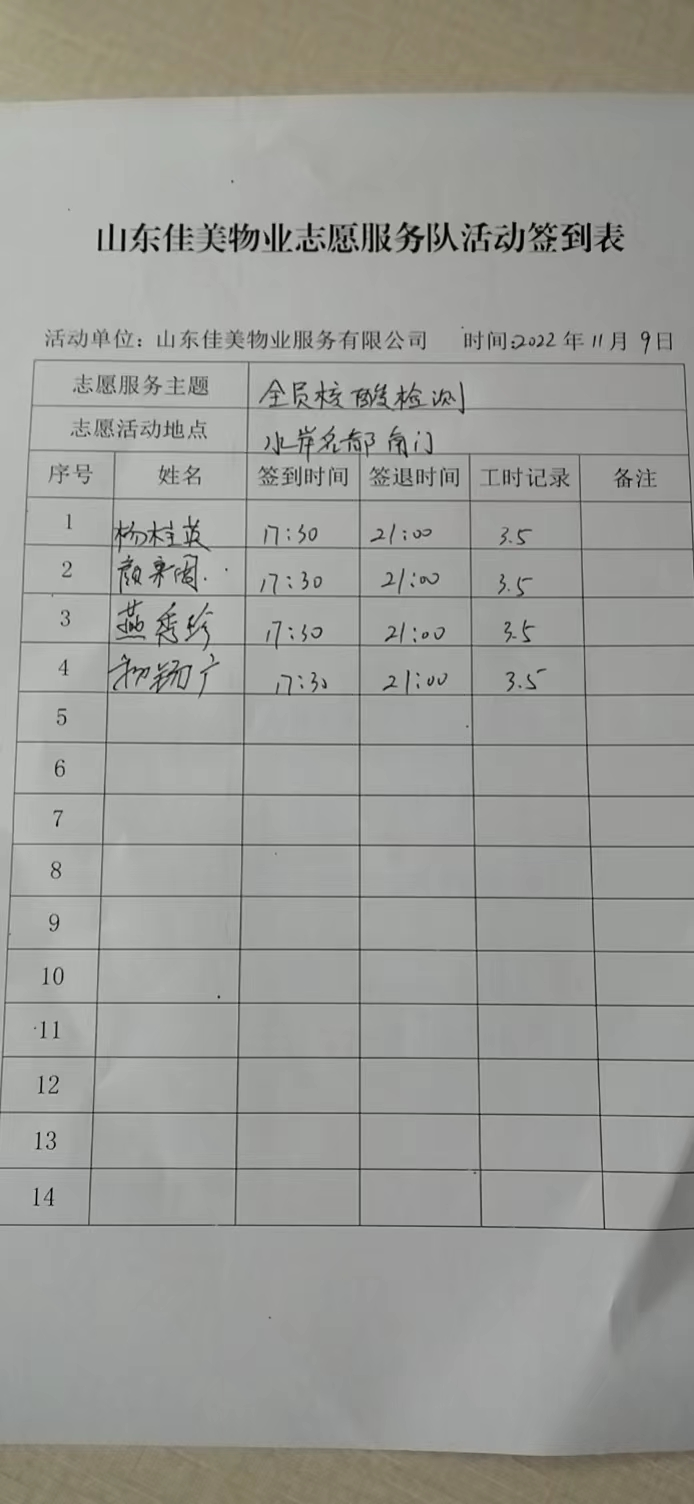 山东佳美物业志愿服务队活动签到表
活动单位：山东佳美物业服务有限公司 时间:2022年11月9日
志愿服务主题 全员核酸检测
志愿活动地点 水岸名都南门
序号 姓名 签到时间 签退时间 工时记录 备注
1 杨桂英 17:30 21:00 3.5
2 17:30 21:00 3.5
3 燕秀珍 17:30 21:00 3.5
4 17:30 21:00 3.5
5
6
7
8
9
10
11
12
13
14